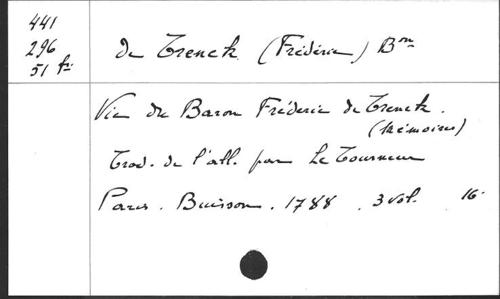 441
296
51 fr.
de Trenck (Frédéric) Bon
Vie du Baron Fréderic de Trenck.
(Mémoires)
Trad. de l'all. par Le Tourneur
Paris. Buisson. 1788. 3 vol. 16.